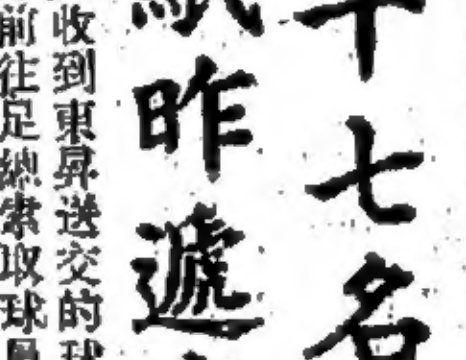 十七名
昨遞
收到東昇送交的球
前往足總索取球員